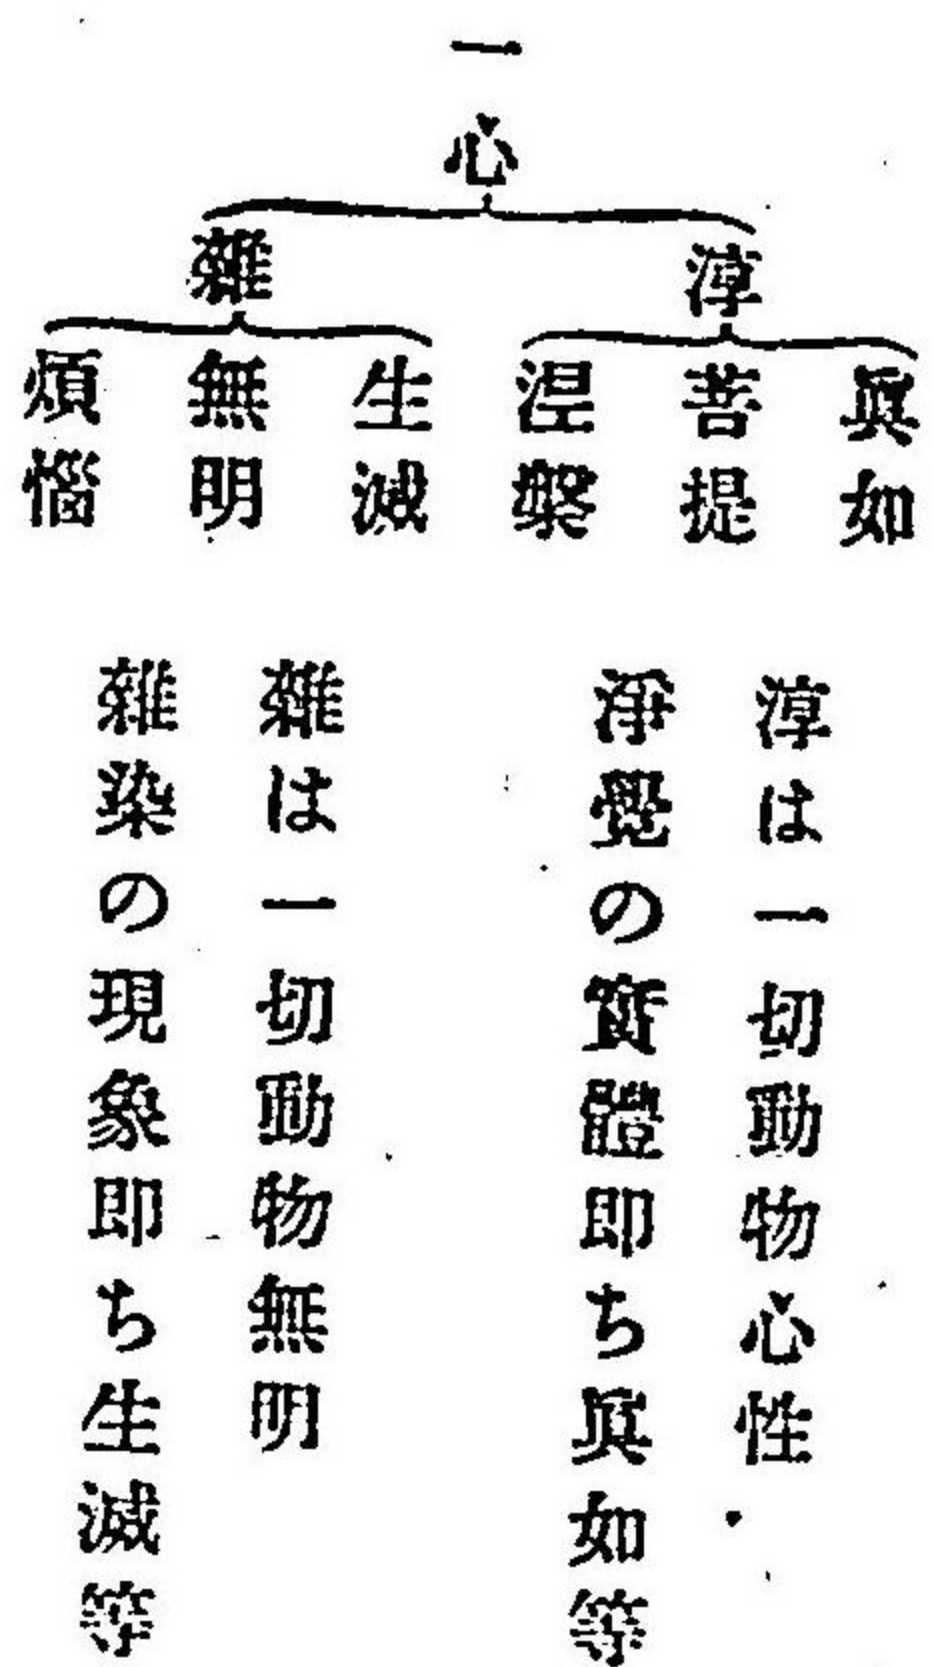 一心
淳
眞如
菩提
涅槃
雜
生滅
無明
煩惱
淳は一切動物心性
淨覺の實體即ち眞如等
雜は一切動物無明
雜染の現象即ち生滅等